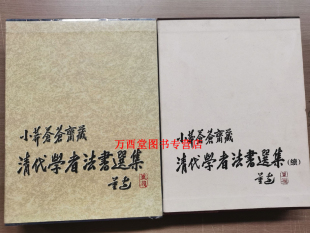 小莽蒼蒼齋藏
清代學者法書選集
小莽蒼蒼齋藏
清代學者法書選集(續)
万西堂图书专卖店